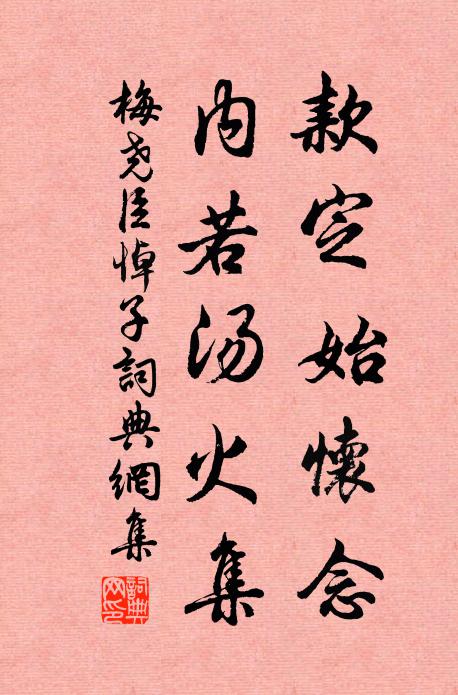 款定始懷念
内若汤火集
梅尧臣悼子詞典網集
詞典网印